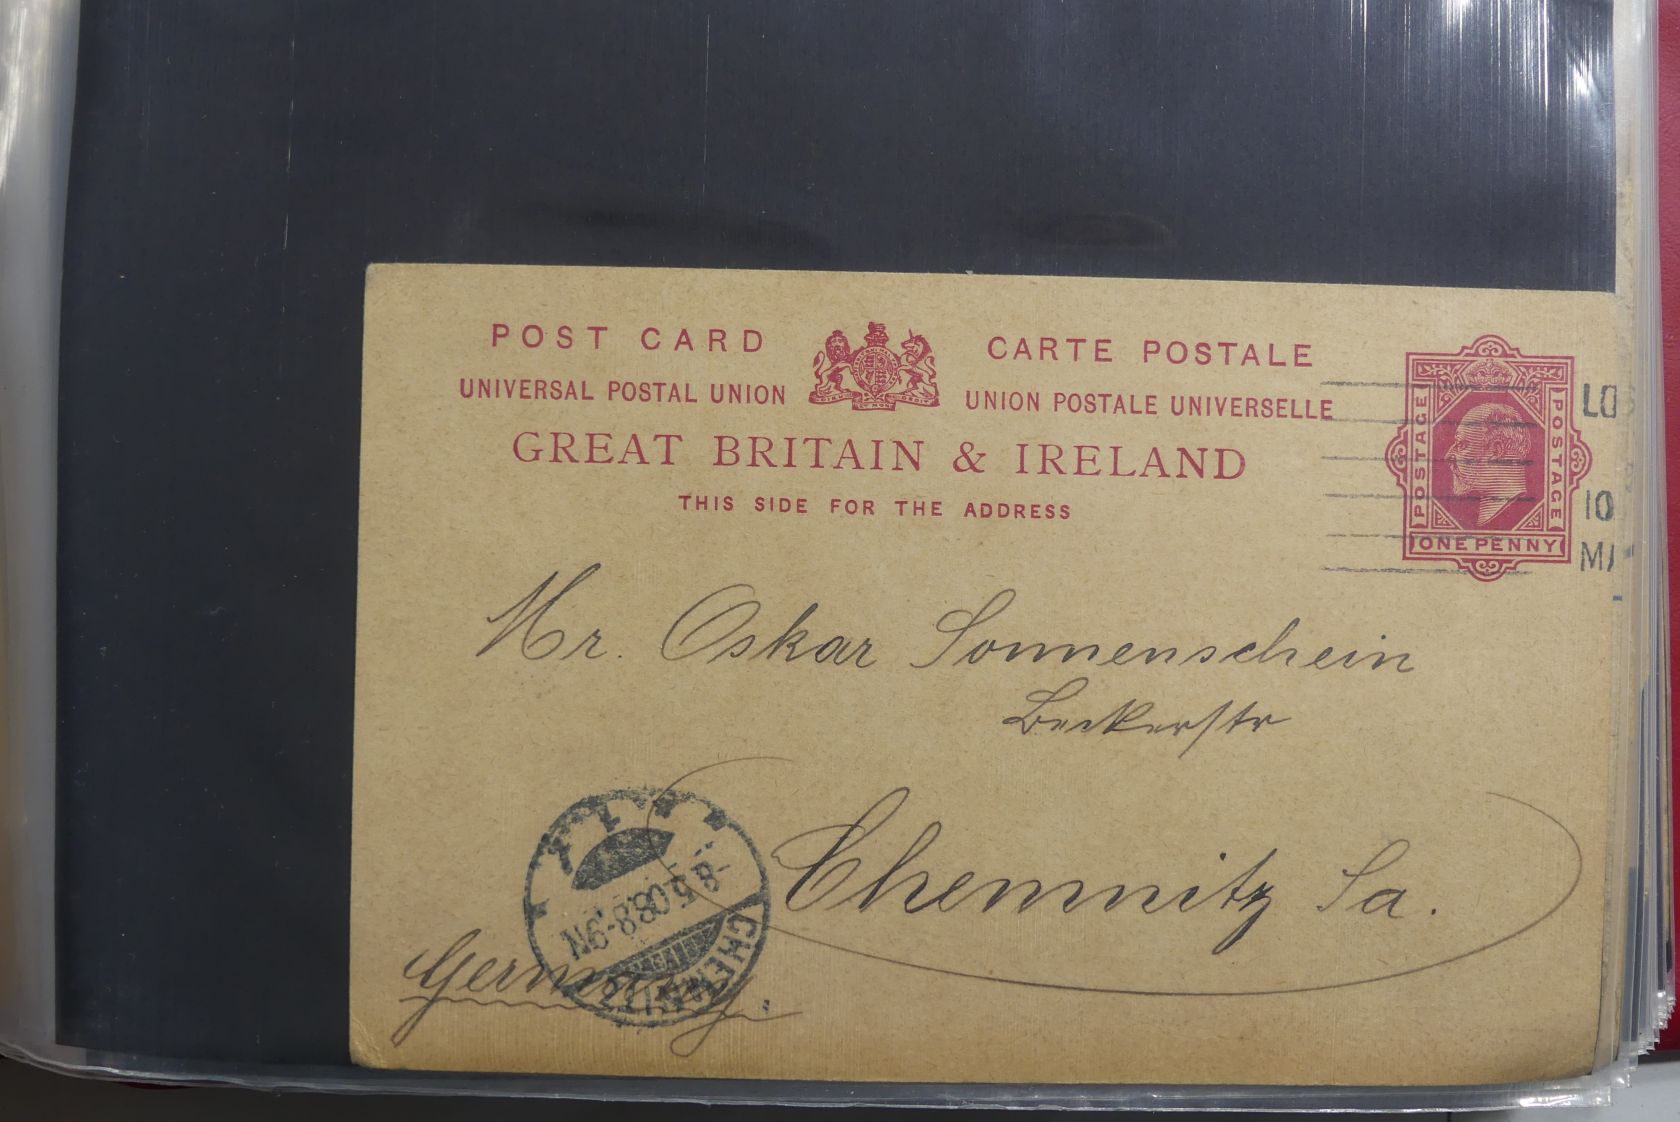 POST CARD CARTE POSTALE
UNIVERSAL POSTAL UNION UNION POSTALE UNIVERSELLE
GREAT BRITAIN & IRELAND
THIS SIDE FOR THE ADDRESS
POSTAGE POSTAGE
ONE PENNY
LO
10
MA
Mr. Oskar Sonnenschein
Beckerstr
Chemnitz Sa.
Germany.
CHEMNITZ